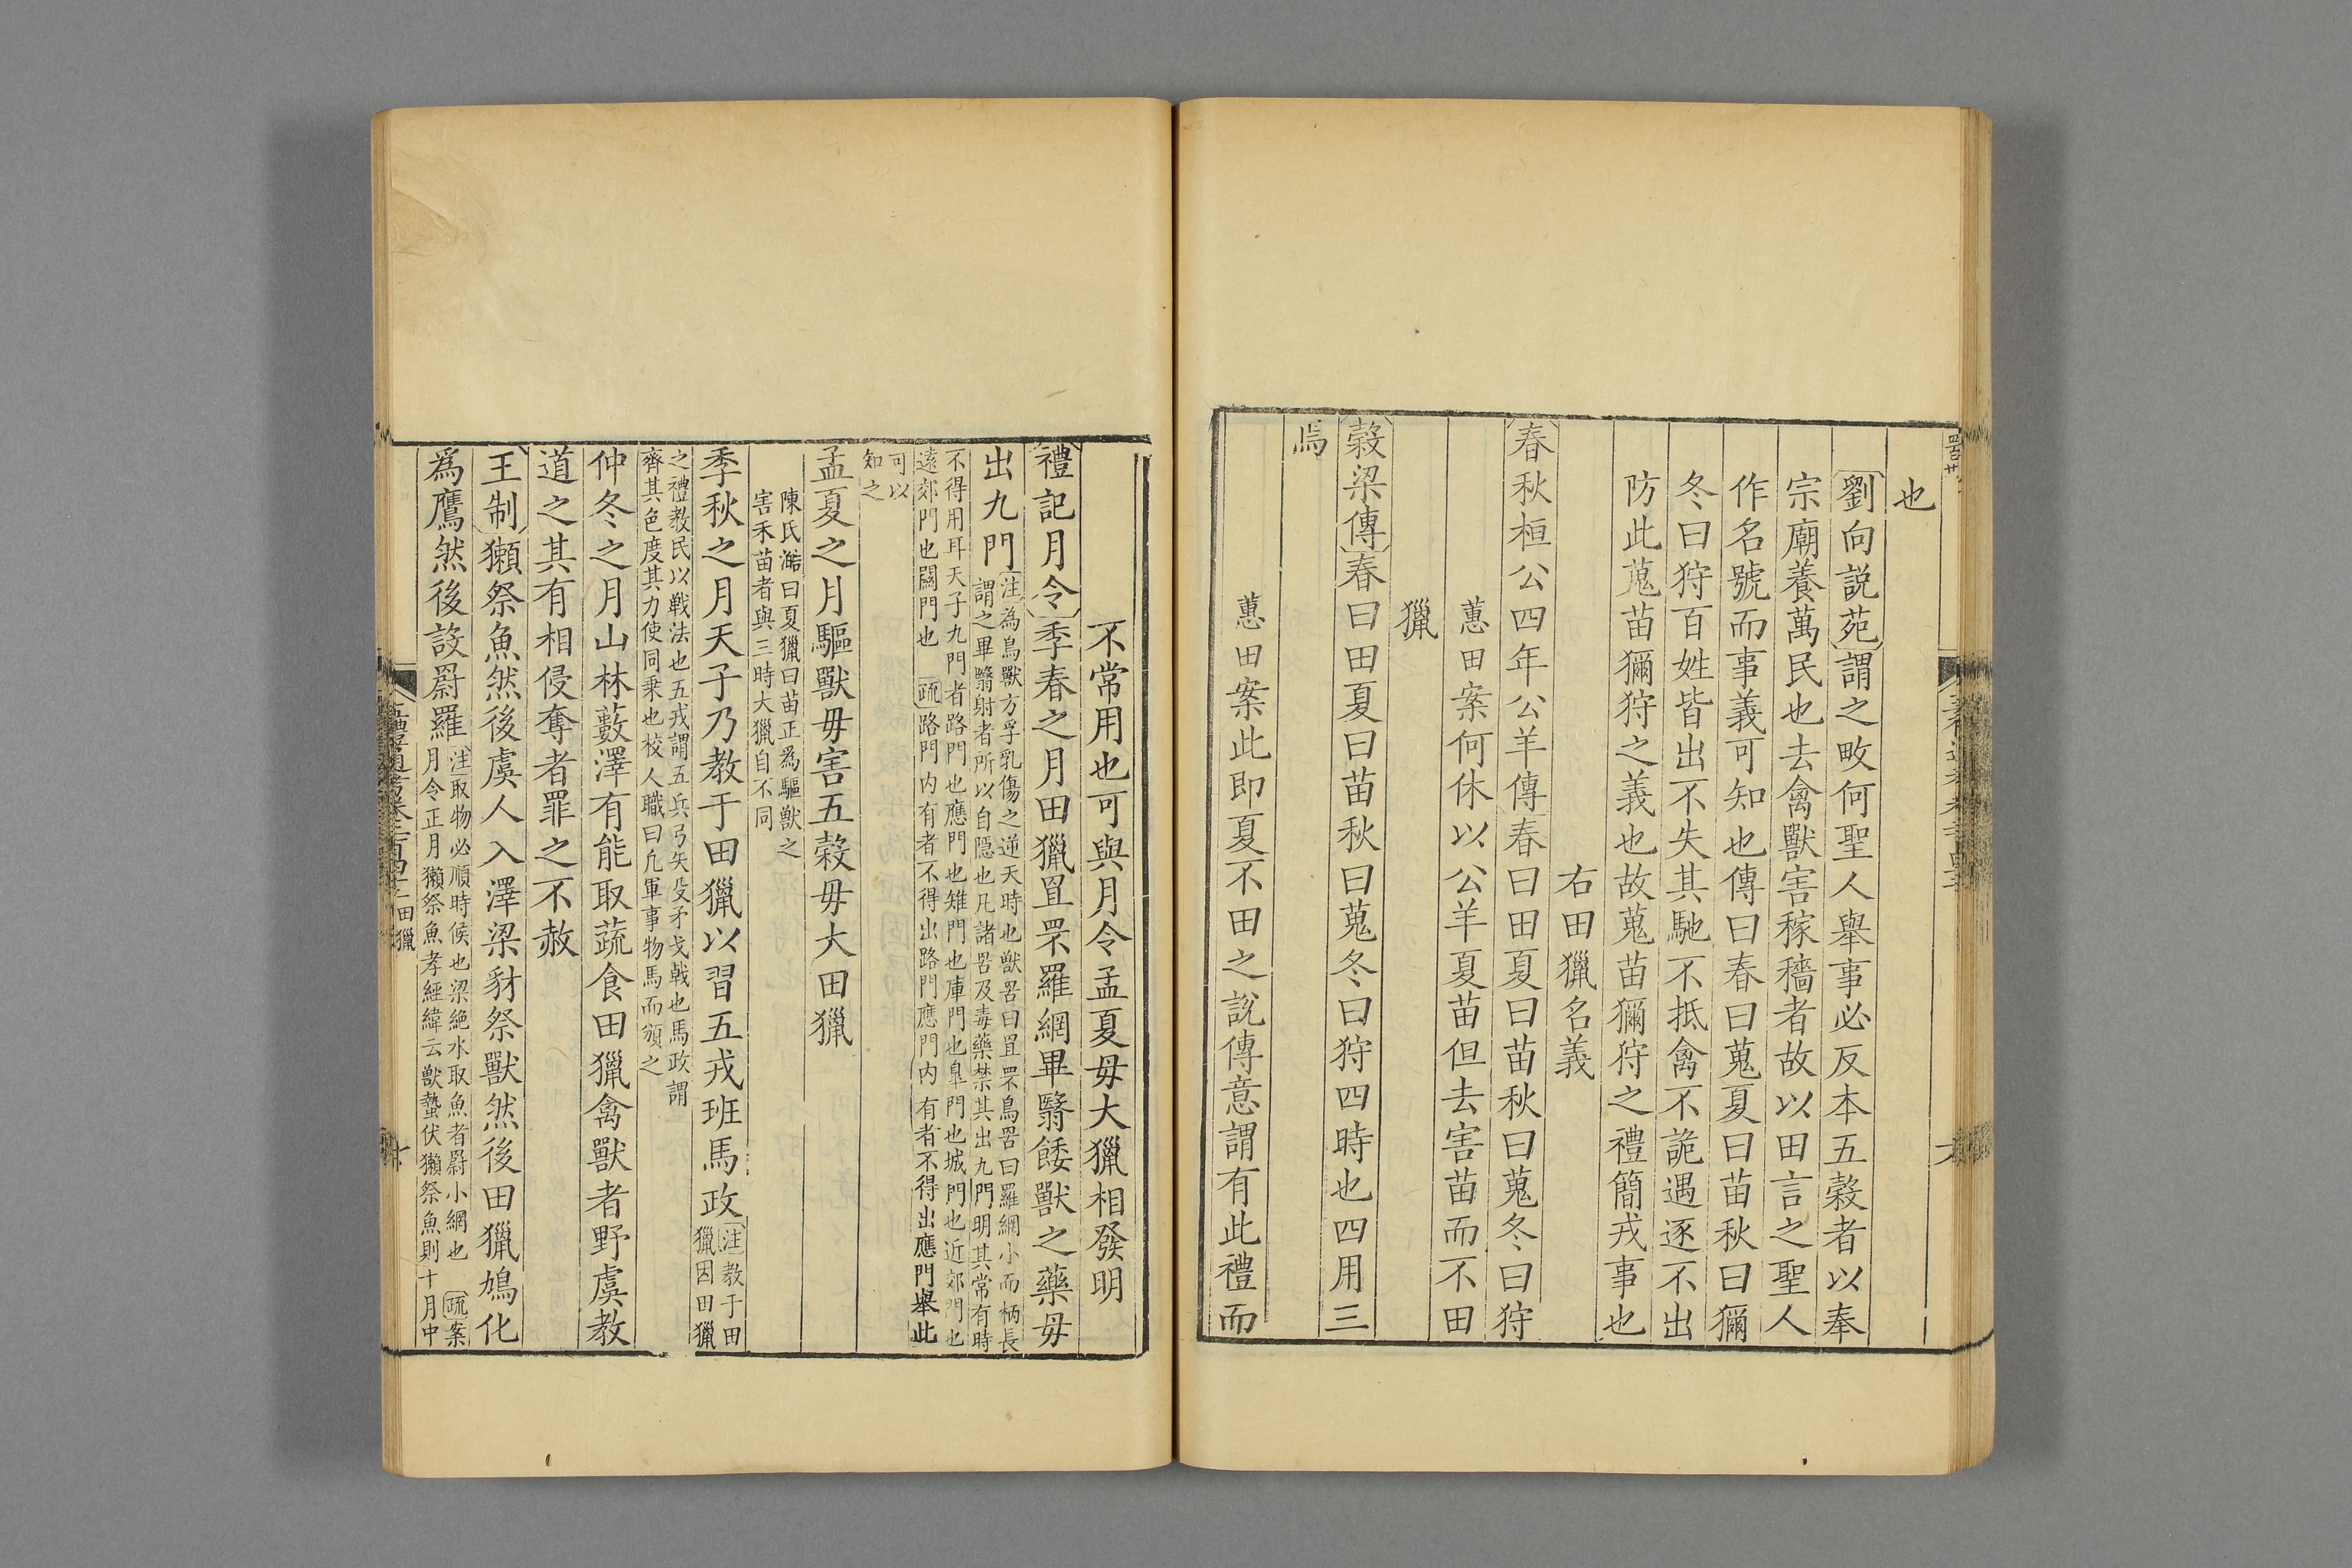 也
劉向說苑謂之畋何聖人舉事必反本五穀者以奉
宗廟養萬民也去禽獸害稼穡者故以田言之聖人
作名號而事義可知也傳曰春曰蒐夏曰苗秋曰獮
冬曰狩百姓皆出不失其馳不抵禽不詭遇逐不出
防此蒐苗獮狩之義也故蒐苗獮狩之禮簡戎事也
右田獵名義
春秋桓公四年公羊傳春曰田夏曰苗秋曰蒐冬曰狩
蕙田案何休以公羊夏苗但去害苗而不田
獵
穀梁傳春曰田夏曰苗秋曰蒐冬曰狩四時也四用三
焉
蕙田案此即夏不田之說傳意謂有此禮而
不常用也可與月令孟夏毋大獵相發明
禮記月令季春之月田獵罝罘羅網畢翳餧獸之藥毋
出九門
注為鳥獸方孚乳傷之逆天時也獸罟曰罝罘鳥罟曰羅網小而柄長
謂之畢翳射者所以自隱也凡諸罟及毒藥禁其出九門明其常有時
不得用耳天子九門者路門也應門也雉門也庫門也皐門也城門也近郊門也
遠郊門也關門也 疏路門内有者不得出路門應門内有者不得出應門舉此
可以
知之
孟夏之月驅獸毋害五穀毋大田獵
陳氏澔曰夏獵曰苗正爲驅獸之
害禾苗者與三時大獵自不同
季秋之月天子乃教于田獵以習五戎班馬政
注教于田
獵因田獵
之禮教民以戰法也五戎謂五兵弓矢殳矛戈戟也馬政謂
齊其色度其力使同乘也校人職曰凡軍事物馬而頒之
仲冬之月山林藪澤有能取蔬食田獵禽獸者野虞教
道之其有相侵奪者罪之不赦
王制獺祭魚然後虞人入澤梁豺祭獸然後田獵鳩化
爲鷹然後設罻羅
注取物必順時候也梁絶水取魚者罻小網也 疏案
月令正月獺祭魚孝經緯云獸蟄伏獺祭魚則十月中
田獵